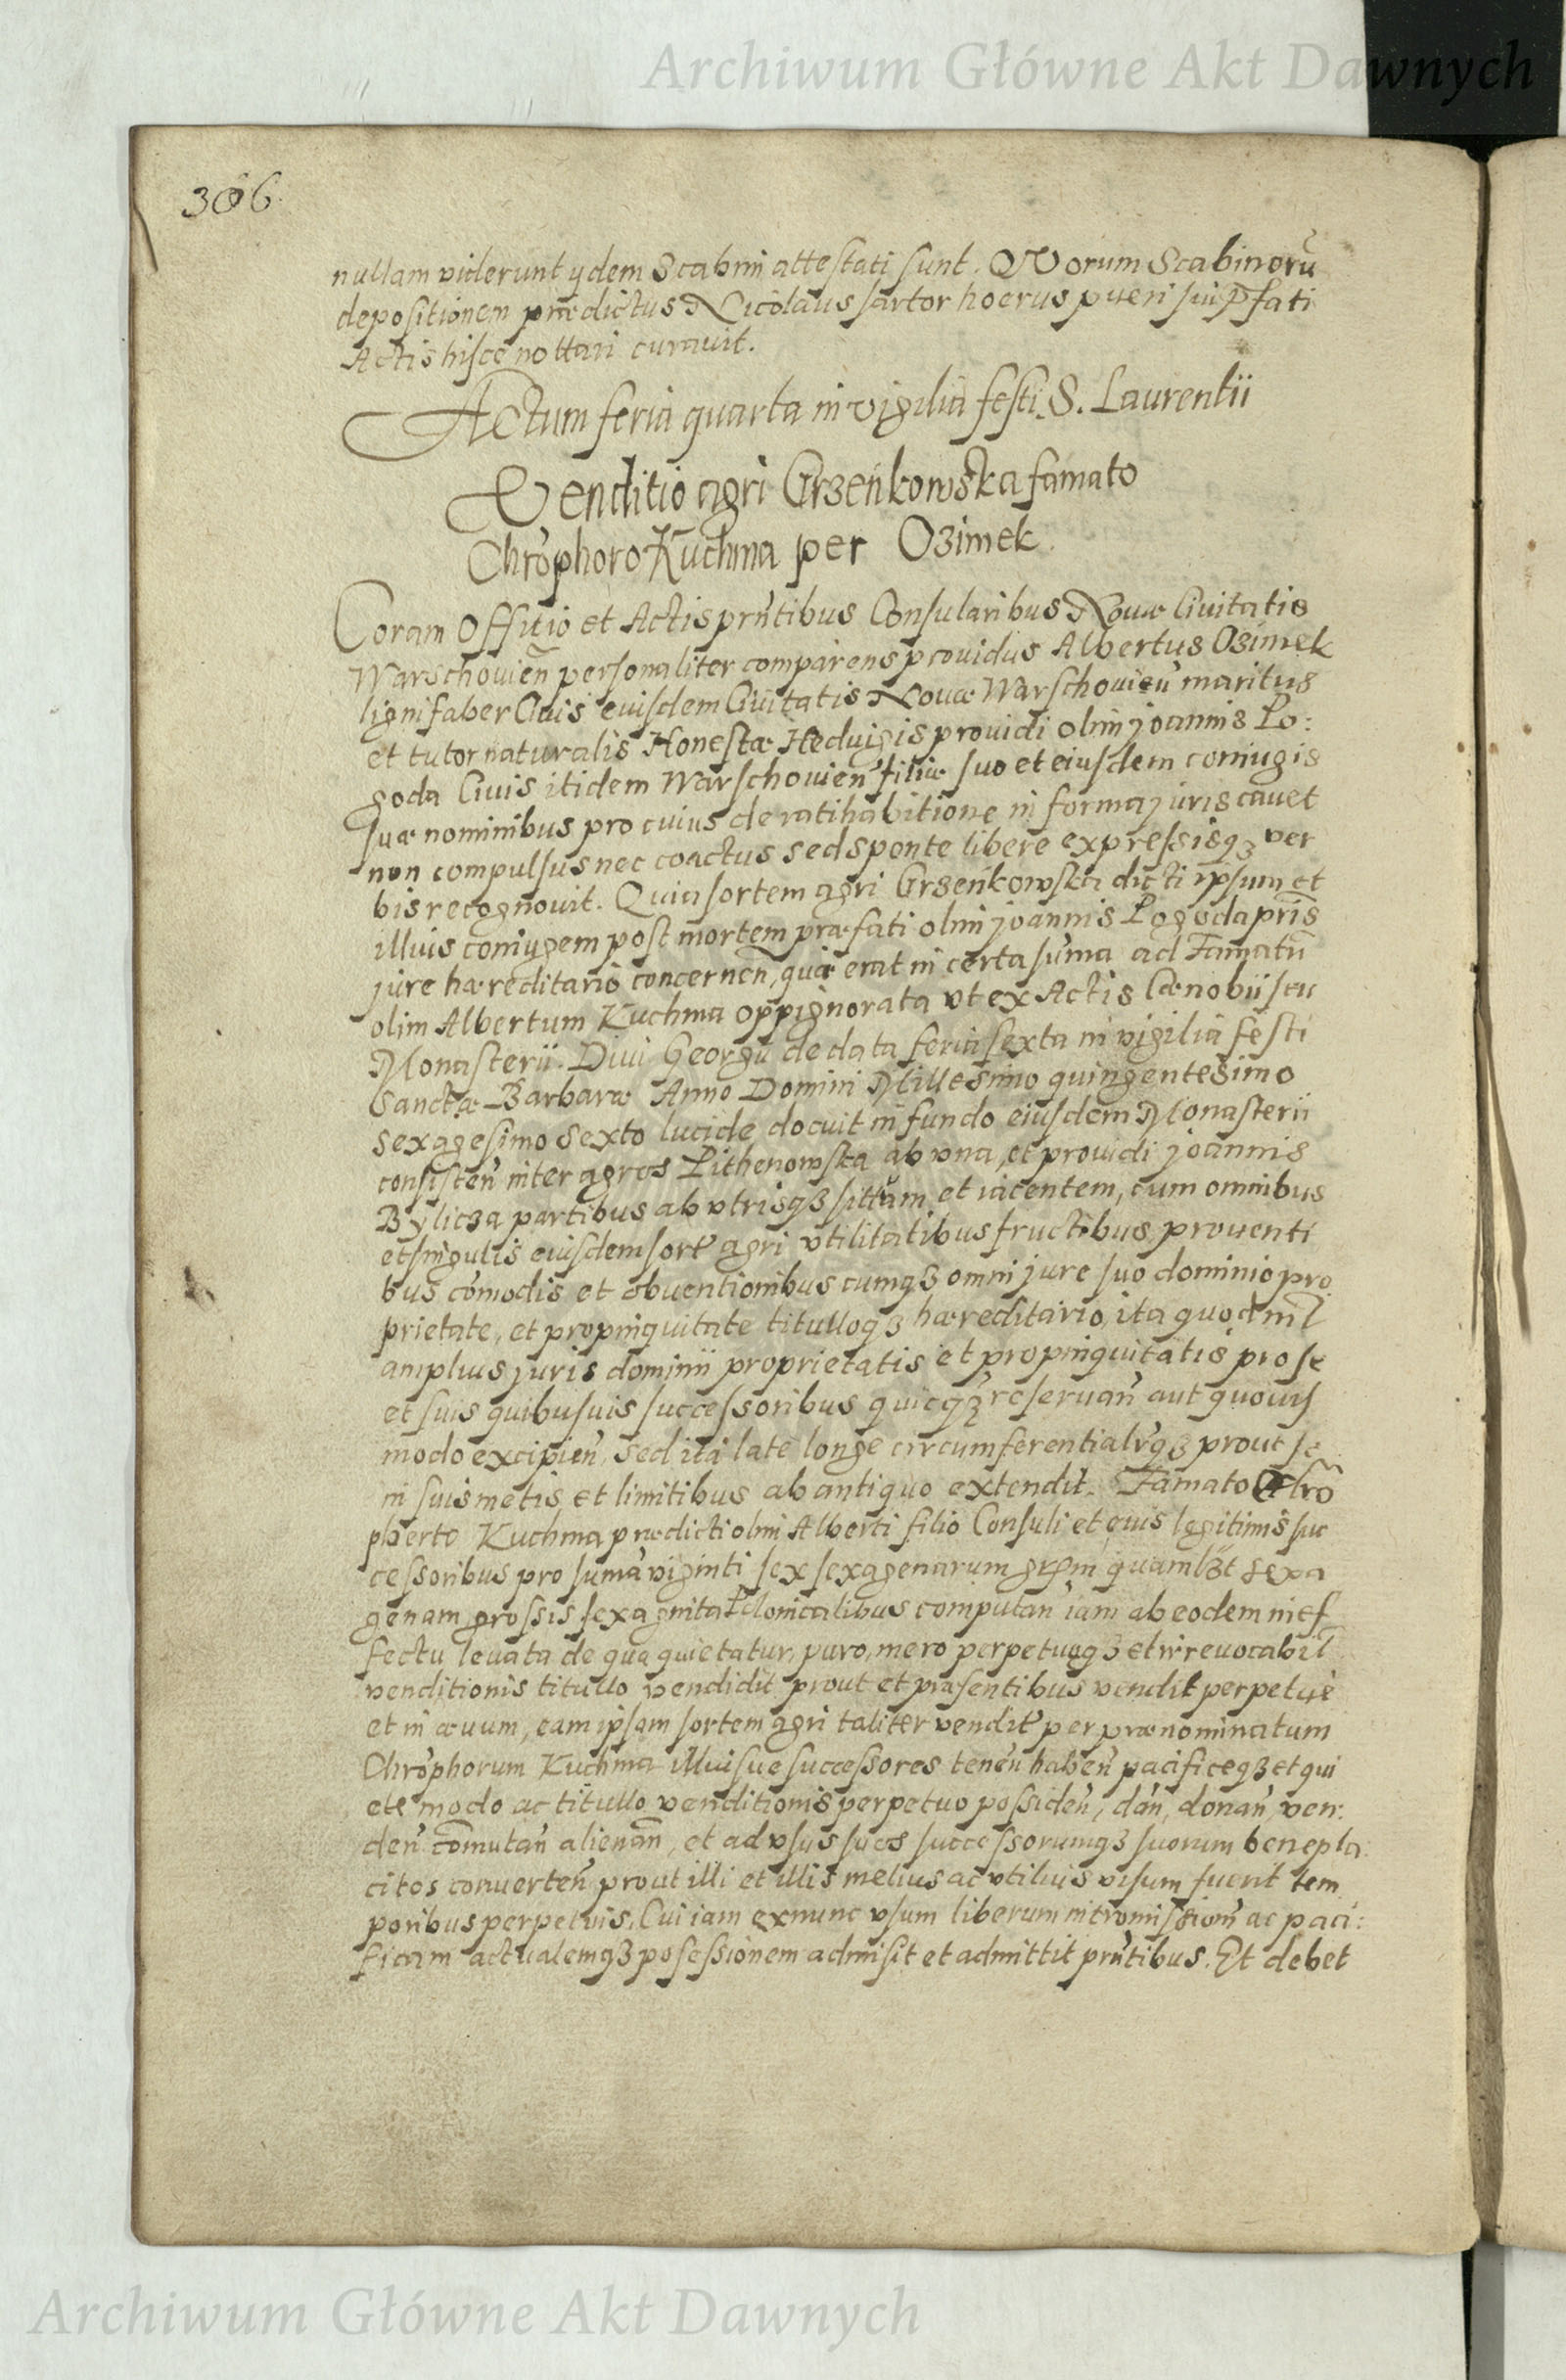 Archiwum Główne Akt Dawnych
306
nullam viderunt ydem Scabini attestati sunt. QVorum Scabinorũ
depositionem prædictus Nicolaus sartor hoerus pueri sui p̃fati
Actis hisce nottari curavit.
Actum feria quarta in vigilia festi S. Laurentii
Venditio agri Grzeńkowska famato
Chrõphoro Kuchma per Ozimek
Coram Officio et Actis prñtibus Consularibus Novæ Civitatis
Warschovień personaliter comparens providus Albertus Ozimek
lignifaber Civis eiusdem Civitatis Novæ Warschovień maritus
et tutor naturalis Honestæ Hedvigis providi olim joannis Po:
goda Civis itidem Warschovień filiæ suo et eiusdem coniugis
suæ nominibus pro cuius de ratihabitione in forma juris cavet
non compulsus nec coactus sed sponte libere expressisqꝫ ver
bis recognovit. Quia sortem agri Grzeńkowska dicti ipsum et
illius coniugem post mortem præfati olim joannis Pogoda pr̃is
jure hæreditario concerneñ, quæ erat in certa sum̃a ad Famatũ
olim Albertum Kuchma oppignorata vt ex Actis Cœnobii seu
Monasterii Divi Georgii de data feria sexta in vigilia festi
Sanctæ Barbaræ Anno Domini Millesimo quingentesimo
sexagesimo sexto lucide docuit in fundo eiusdem Monasterii
consisteñ inter agros Pithenowska ab vna, et providi joannis
Bylicza partibus ab vtrisqꝫ sittam et iacentem, cum omnibus
et singulis eiusdem sort̃ agri vtilitatibus fructibus proventi
bus com̃odis et obventionibus cumqꝫ omni jure suo dominio pro
prietate, et propinquitate titulloqꝫ hæreditario, ita quod nil
amplius juris dominii proprietatis et propinquitatis pro se
et suis quibusvis successoribus quicqꝫ reservań aut quovis
modo excipień, sed ita late longe circumferentialr̃qꝫ prout se
in suis metis et limitibus ab antiquo extendit. Famato Chrõ
phero Kuchma prædicti olim Alberti filio Consuli et eius legitimis suc
cessoribus pro sum̃a viginti sex sexagenarum quamlꝫt sexa
genam grossis sexaginta Polonicalibus computań iam ab eodem in ef
fectu levata de qua quietatur, puro, mero perpetuoqꝫ et irrevocabil̃
venditionis titullo vendidit prout et præsentibus vendit perpetuè
et in ævum, eam ipsam sortem agri taliter vendit̃ per prænominatum
Chrõphorum Kuchma illiusve successores teneń habeń pacificeqꝫ et qui
ete modo ac titullo venditionis perpetuo possideń, dań, donań, ven:
deń com̃utań alienań, et ad vsus suos successorumqꝫ suorum benepla
citos converteń prout illi et illis melius ac vtilius visum fuerit tem
poribus perpetuis. Cui iam exnunc vsum liberum intromissioñ ac paci:
ficam actualemqꝫ posessionem admisit et admittit prñtibus. Et debet
Archiwum Główne Akt Dawnych